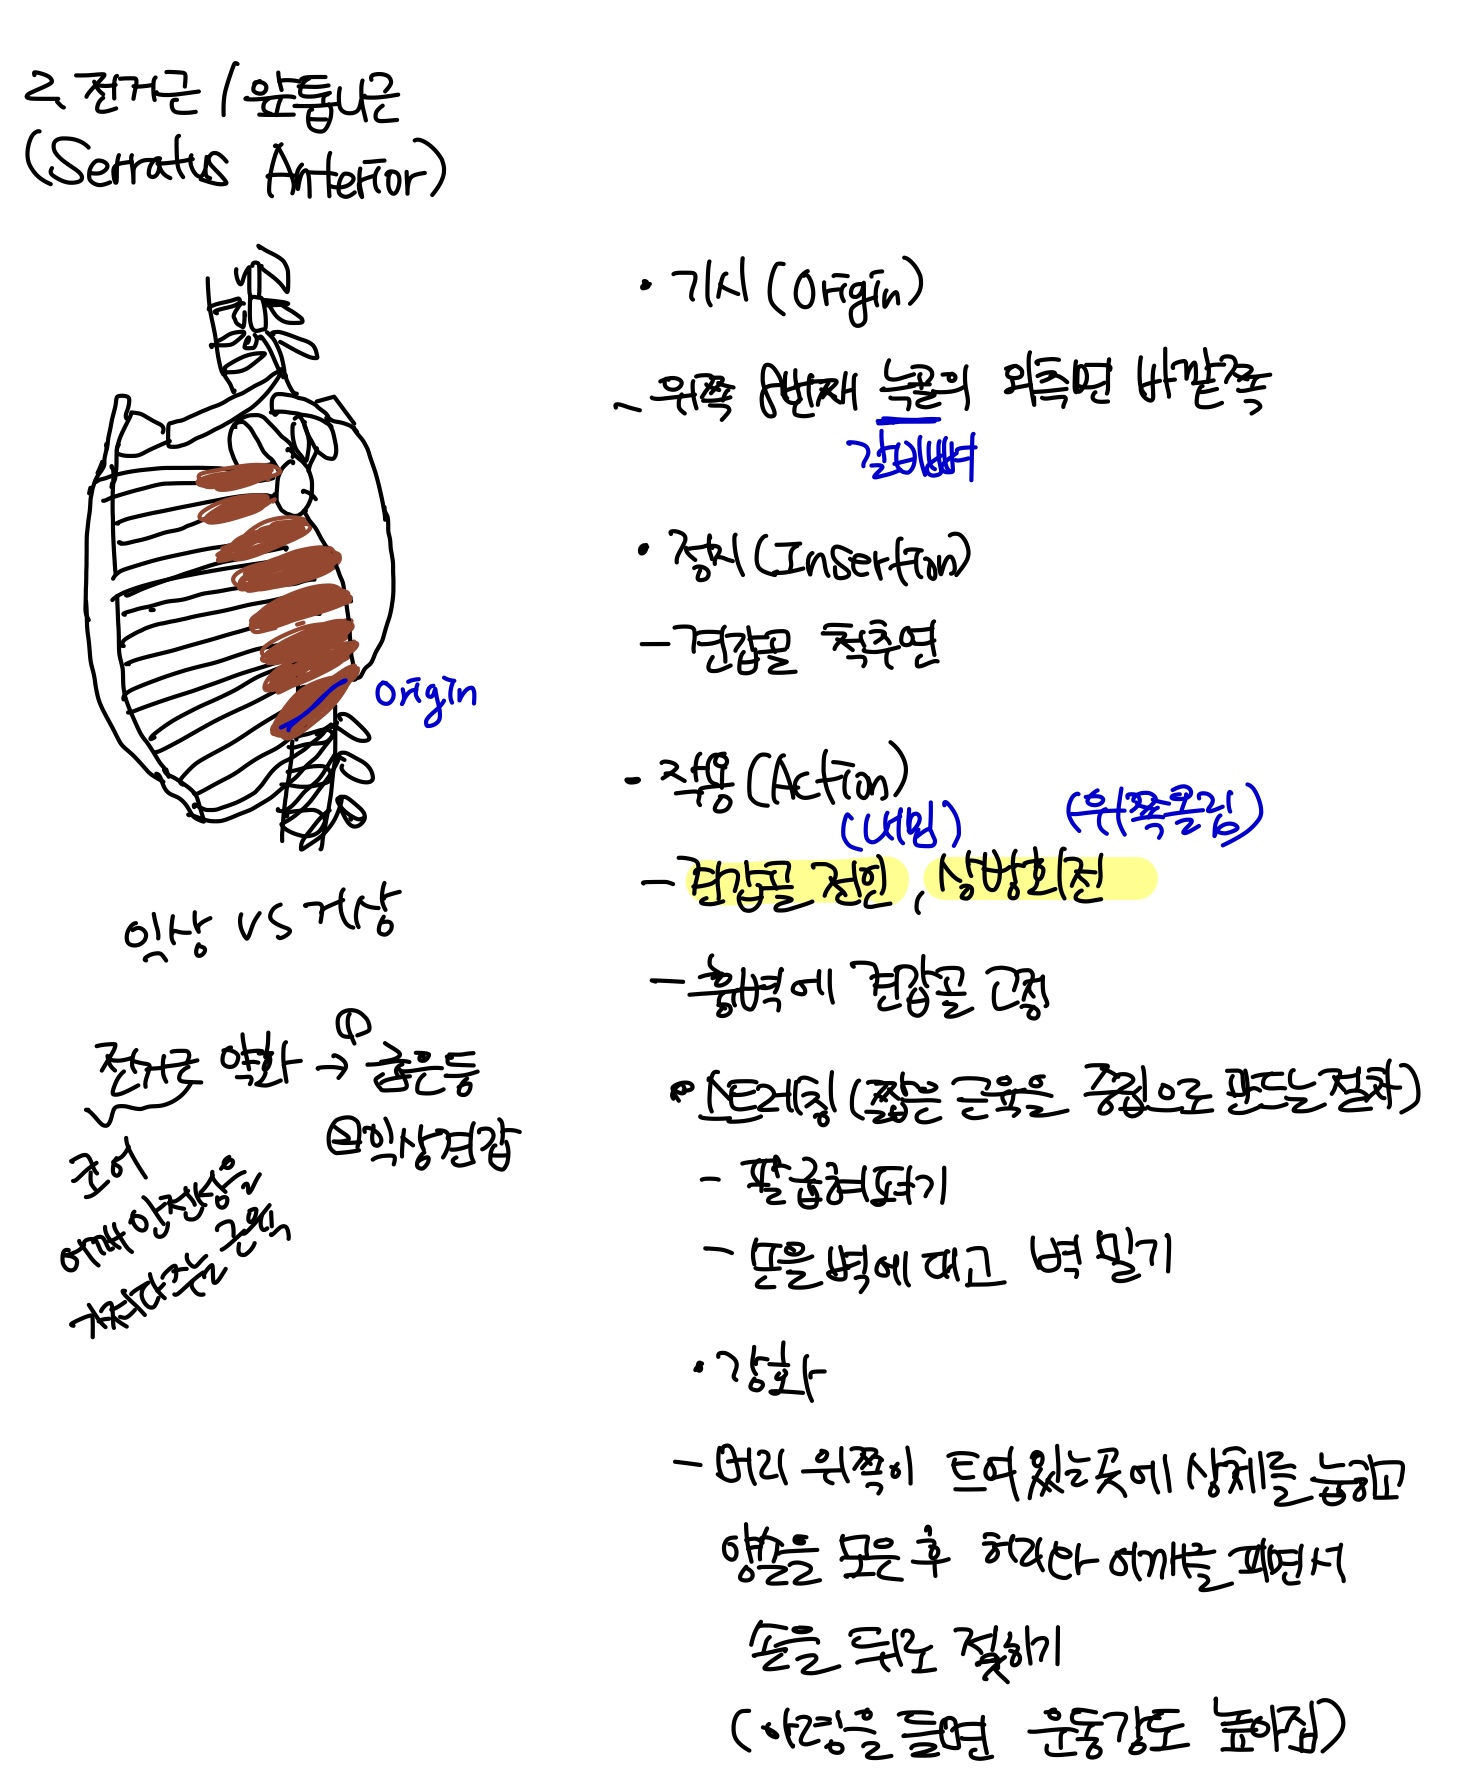 2. 전거근 / 앞톱니근
(Serratus Anterior)
Origin
익상 vs 거상
전거근 약화 → ① 굽은등
② 익상견갑
코어
어깨 안전성을
가져다주는 근육
• 기시 (Origin)
- 위쪽 8번째 늑골의 외측면 바깥쪽
갈비뼈
• 정지 (Insertion)
- 견갑골 척추연
• 작용 (Action)
(내밈) (위쪽돌림)
- 견갑골 전인, 상방회전
- 흉벽에 견갑골 고정
• 스트레칭 (짧은 근육을 중립으로 만드는 절차)
- 팔굽혀펴기
- 손을 벽에 대고 벽 밀기
• 강화
- 머리 위쪽이 트여있는 곳에 상체를 눕히고
양발을 모은 후 허리와 어깨를 펴면서
손을 뒤로 젖히기
(아령을 들면 운동강도 높아짐)